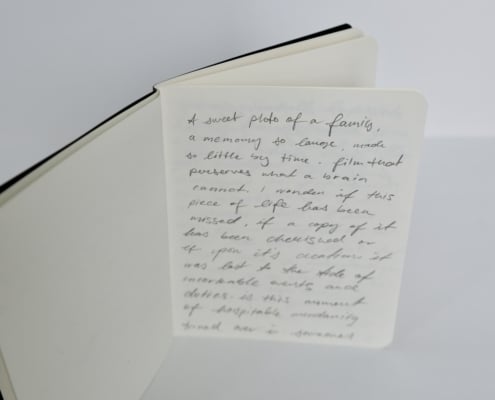 A sweet photo of a family,
a memory so large, made
so little by time. film that
perserves what a brain
cannot. I wonder if this
piece of life has been
missed, if a copy of it
has been cherished or
if upon it's creation it
was lost to the tide of
invariable events and
duties. is this moment
of hospitable mundanity
over in someones